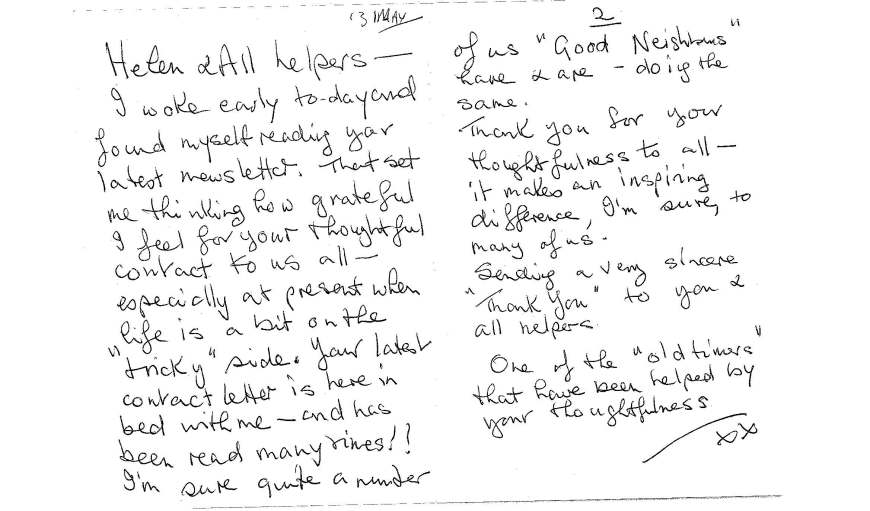 13 MAY
Helen & All helpers —
I woke early to-day and
found myself reading your
latest newsletter. That set
me thinking how grateful
I feel for your thoughtful
contact to us all —
especially at present when
life is a bit on the
"tricky" side. Your latest
contact letter is here in
bed with me — and has
been read many times!!
I'm sure quite a number
2
of us "Good Neighbours"
have & are - doing the
same.
Thank you for your
thoughtfulness to all —
it makes an inspiring
difference, I'm sure, to
many of us.
Sending a very sincere
"Thank You" to you &
all helpers.
One of the "old timers"
that have been helped by
your thoughtfulness
xx